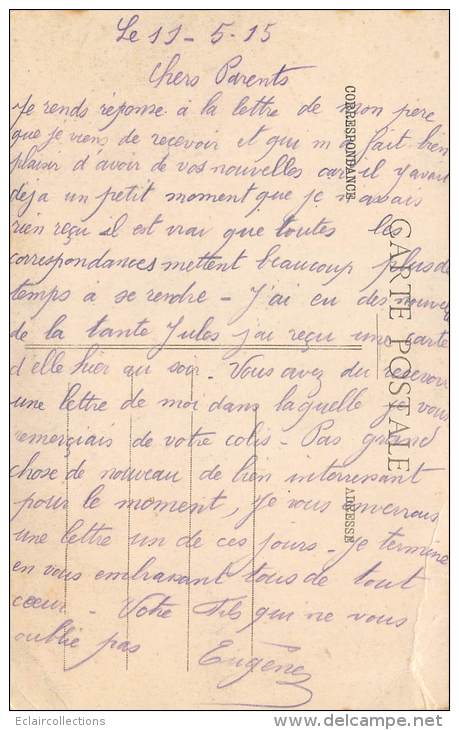 Le 11 - 5 - 15
Chers Parents
Je rends réponse à la lettre de mon père
que je viens de recevoir et qui m'a fait bien
plaisir d'avoir de vos nouvelles car il y avait
déja un petit moment que je n'avais
rien reçu il est vrai que toutes les
correspondances mettent beaucoup plus de
temps à se rendre - J'ai eu des nouvelles
de la tante Jules j'ai reçu une carte
d'elle hier au soir. Vous avez du recevoir
une lettre de moi dans laquelle je vous
remerçiais de votre colis - Pas grand
chose de nouveau de bien intérressant
pour le moment, Je vous enverrais
une lettre un de ces jours - Je termine
en vous embrassant tous de tout
cœur - Votre Fils qui ne vous
oublie pas Eugène
CORRESPONDANCE
CARTE POSTALE
ADRESSE
Eclaircollections
http://www.delcampe.net